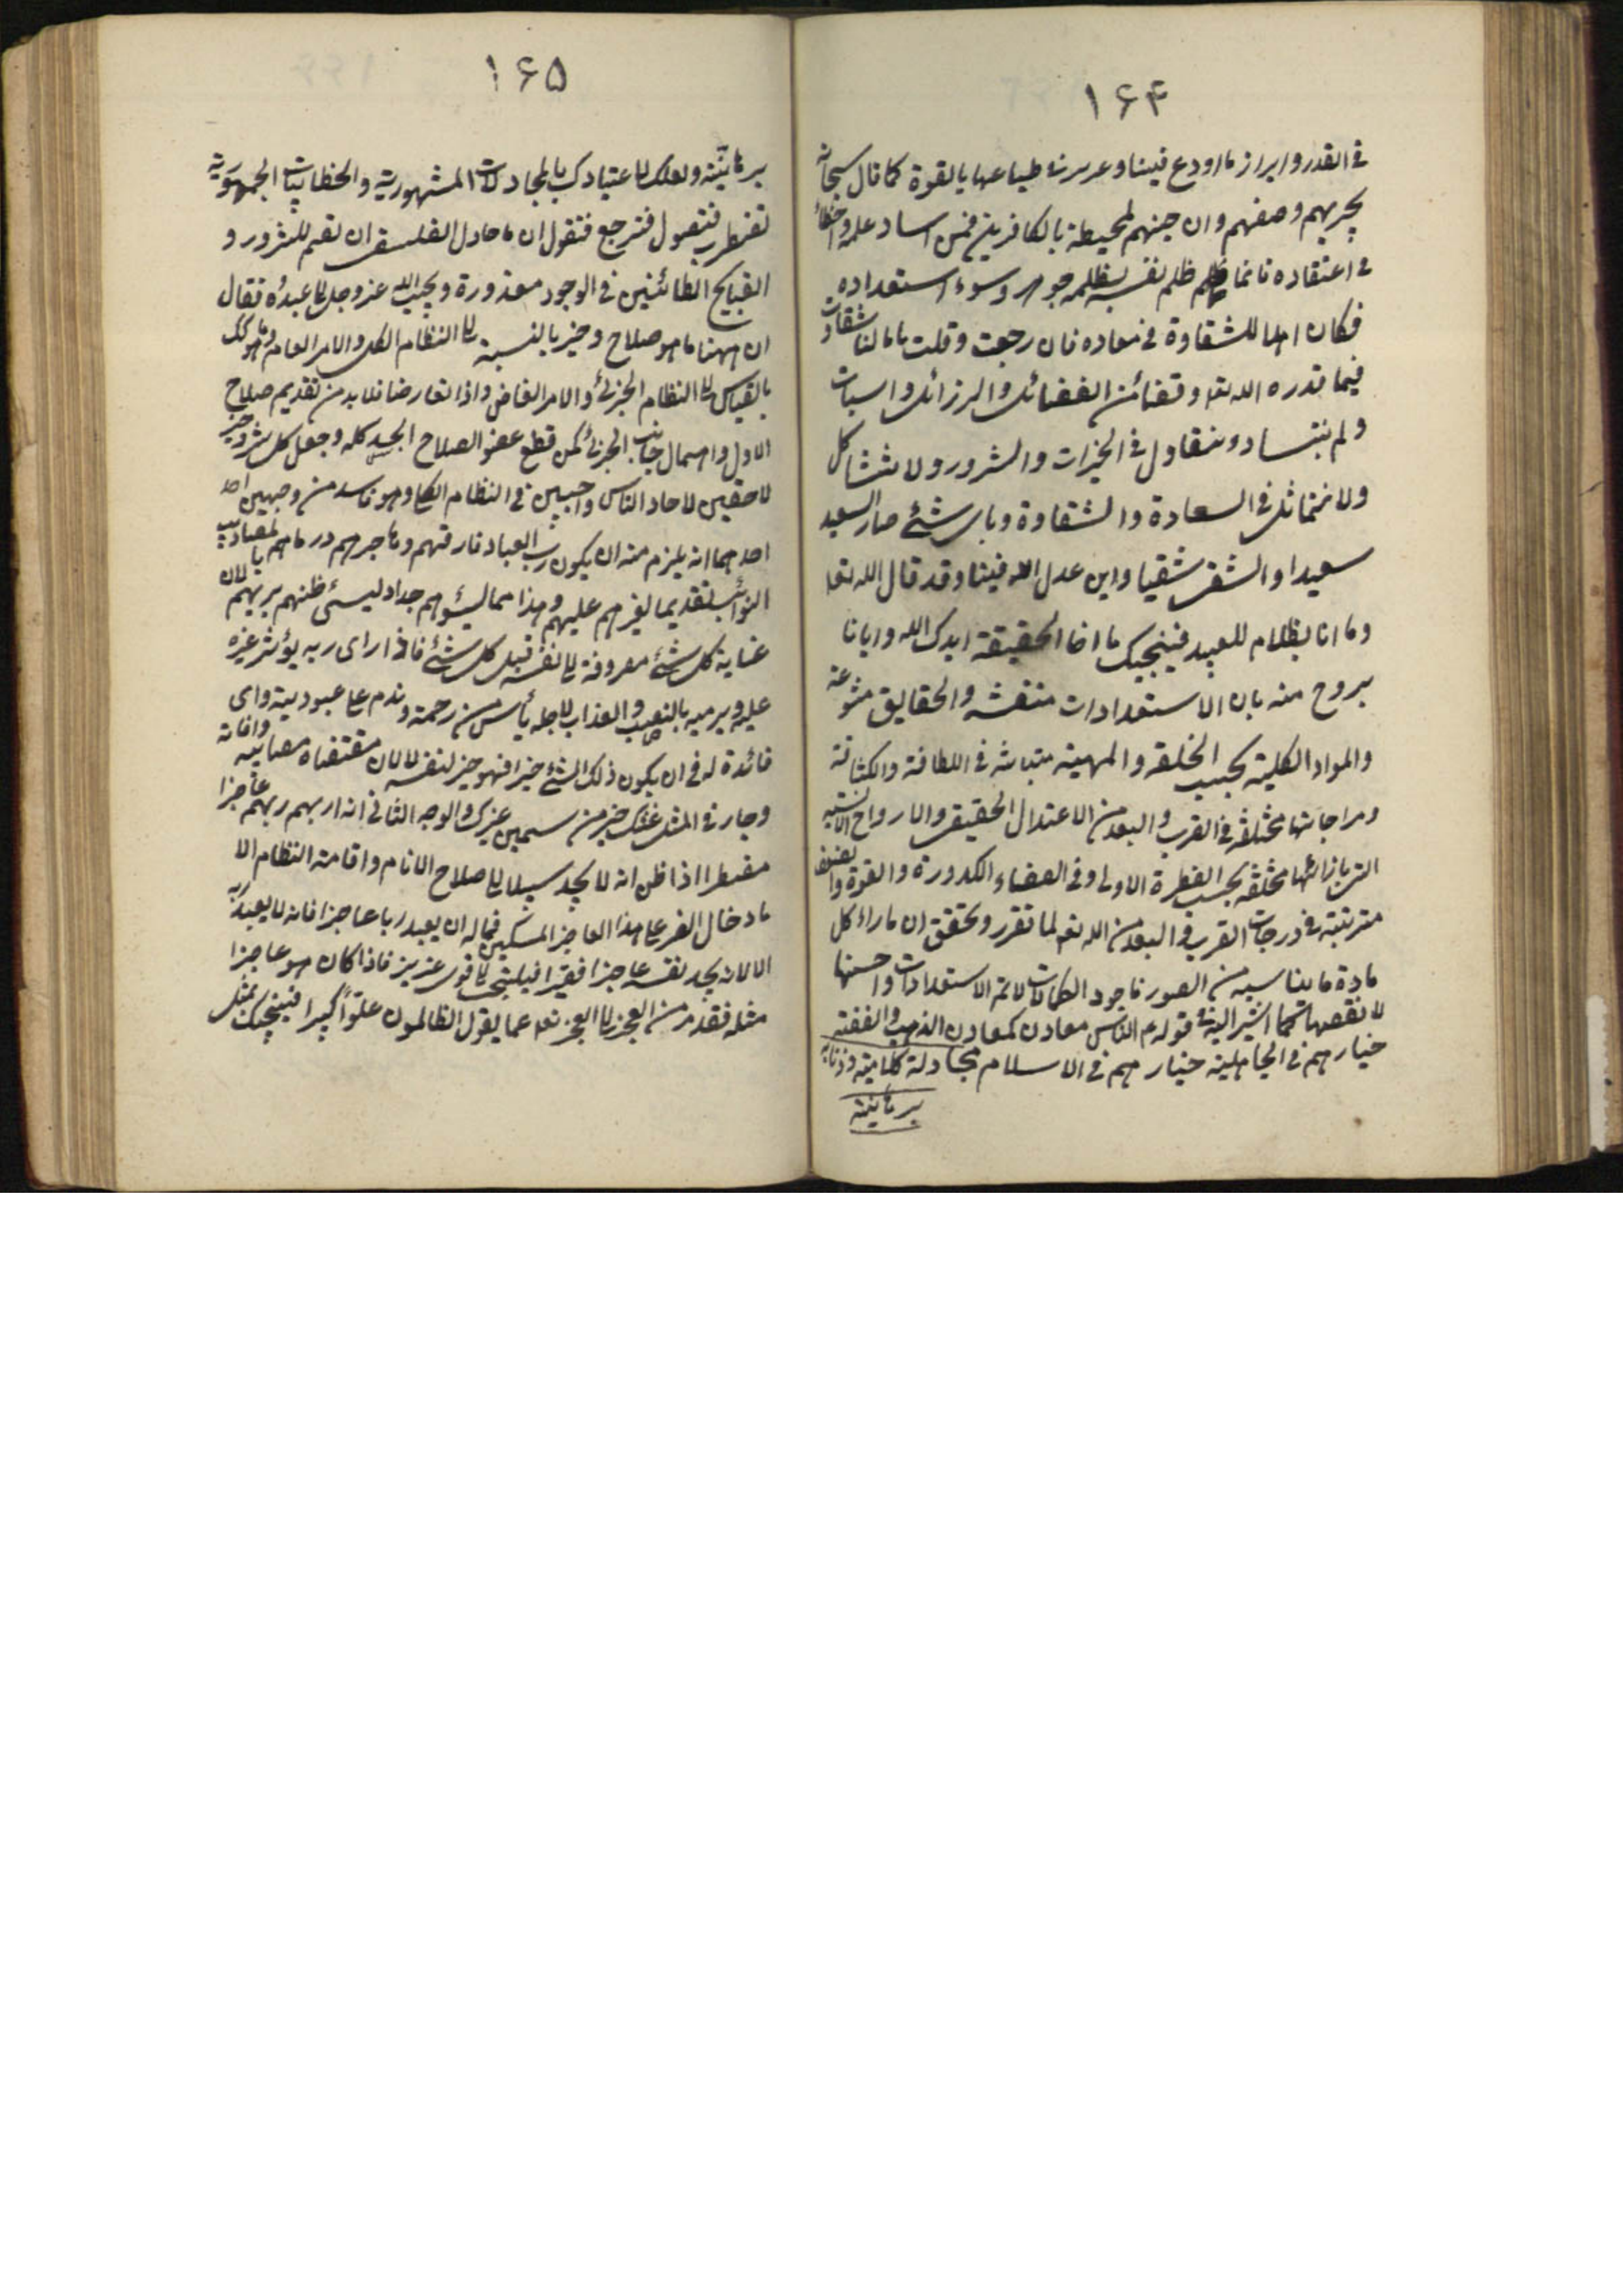 ١۶۴
فى القدر وابراز ما اودع فينا وغرز فى طباعها بالقوة كما قال سبحانه
يجزيهم وصفهم وان جهنم لمحيطة بالكافرين فمن اساء عمله واخطأ
فى اعتقاده فانما ظلم ظلم نفسه بظلمه جوهره وسوء استعداده
فكان اهلا للشقاوة فى معاده فان رجعت وقلت ما بالنا
فيما قدره الله تعا وقضا من الفضائل والرزائل
ولم نتساو ونتعادل فى الخيرات والشرور ولا نتشاكل
ولا نتماثل فى السعادة والشقاوة وباى شئ صار السعيد
سعيدا والشقى شقيا واين عدل الله فينا وقد قال الله تعا
وما انا بظلام للعبيد فيجيبك يا اخا الحقيقة ايدك الله وايانا
بروح منه بان الاستعدادات متفننة والحقايق متنوعة
والمواد الكلية بحسب الخلقة والمهية متباينة فى اللطافة والكثافة
ومزاجاتها مختلفة فى القرب والبعد من الاعتدال الحقيقى والارواح الانسية
التى بازائها مختلفة بحسب الفطرة الاولى وفى الصفاء والكدورة والقوة والضعف
مترتبة فى درجات القرب والبعد من الله تعه لما تقرر وتحقق ان بازاء كل
مادة ما يناسبه من الصور فاجود الكمالات لاتم الاستعدادات واحسنها
لانقصها كما اشير اليه فى قوله م الناس معادن كمعادن الذهب والفضة
خيارهم فى الجاهلية خيارهم فى الاسلام مجادلة كلامية
برهانية
١۶۵
برهانية ولعلك لاعتيادك بالمجادلات المشهورية والخطابيات الجمهورية
تضطرب فتصول فترجع فتقول ان ما حاول الفلسفى ان تقيم للشرور و
القبايح الطائنين فى الوجود معذورة ويجيب الله عزوجل لا عبده فقال
ان ههنا ما هو صلاح وخير بالنسبة الى النظام الكلى والامر العام وما هو كك
بالقياس الى النظام الجزئى والامر الخاص واذا تعارضا فلابد من تقديم صلاح
الاول واهمال جانب الجزئى كمن قطع عضو لصلاح الجسد كله وجعل كل شر وخير
لاحقين لاحاد الناس واجبين فى النظام الكلى وهو فاسد من وجهين
احدهما انه يلزم منه ان يكون رب العباد فارقهم وهاجرهم ورماهم بالمصائب
النوائب تقديما لغيرهم عليهم وهذا مما ليسؤهم جدا وليسئى ظنهم بربهم لان
عناية كل شئ مصروفة الى نفسه قبل كل شئ فاذا راى ربه يؤثر غيره
عليه ويرميه بالتعب والعذاب لاجله يأس من رحمة وندم على عبوديته واى
فائدة له فى ان يكون ذلك الشئ خيرا فهو خير لنفسه لا لان مقتضاه مصايبه وافاته
وجار فى المثل غثك خير من سمين غيرك والوجه الثانى انه اراهم ربهم عاجزا
مضطرا اذا ظن انه لا يجد سبيلا الى صلاح الانام واقامة النظام الا
بادخال الضر على هذا العاجز المسكين فماله ان يعبد ربا عاجزا فانه لا يعبد ربه
الا لانه يجد نفسه عاجزا فقيرا فيلتجى الى قوى عزيز فاذا كان هو عاجزا
مثله فقد فر من العجز الى العجز تعه عما يقول الظالمون علوا كبيرا فيجيبك بمثل